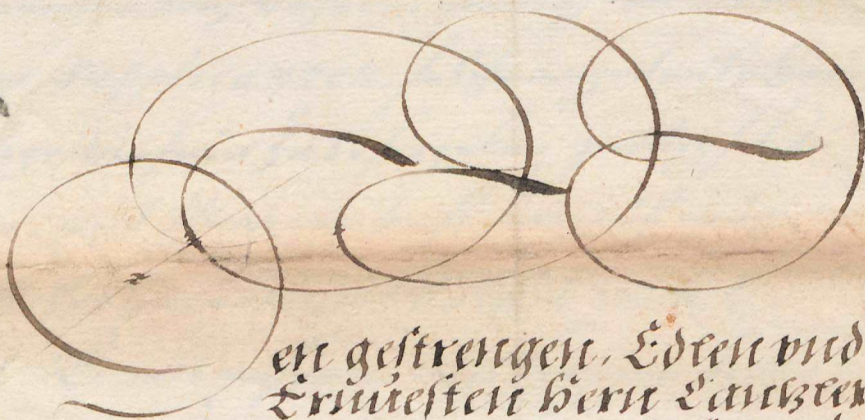 en gestrengen, Edlen vnd
Ernuesten Hern Cantzler